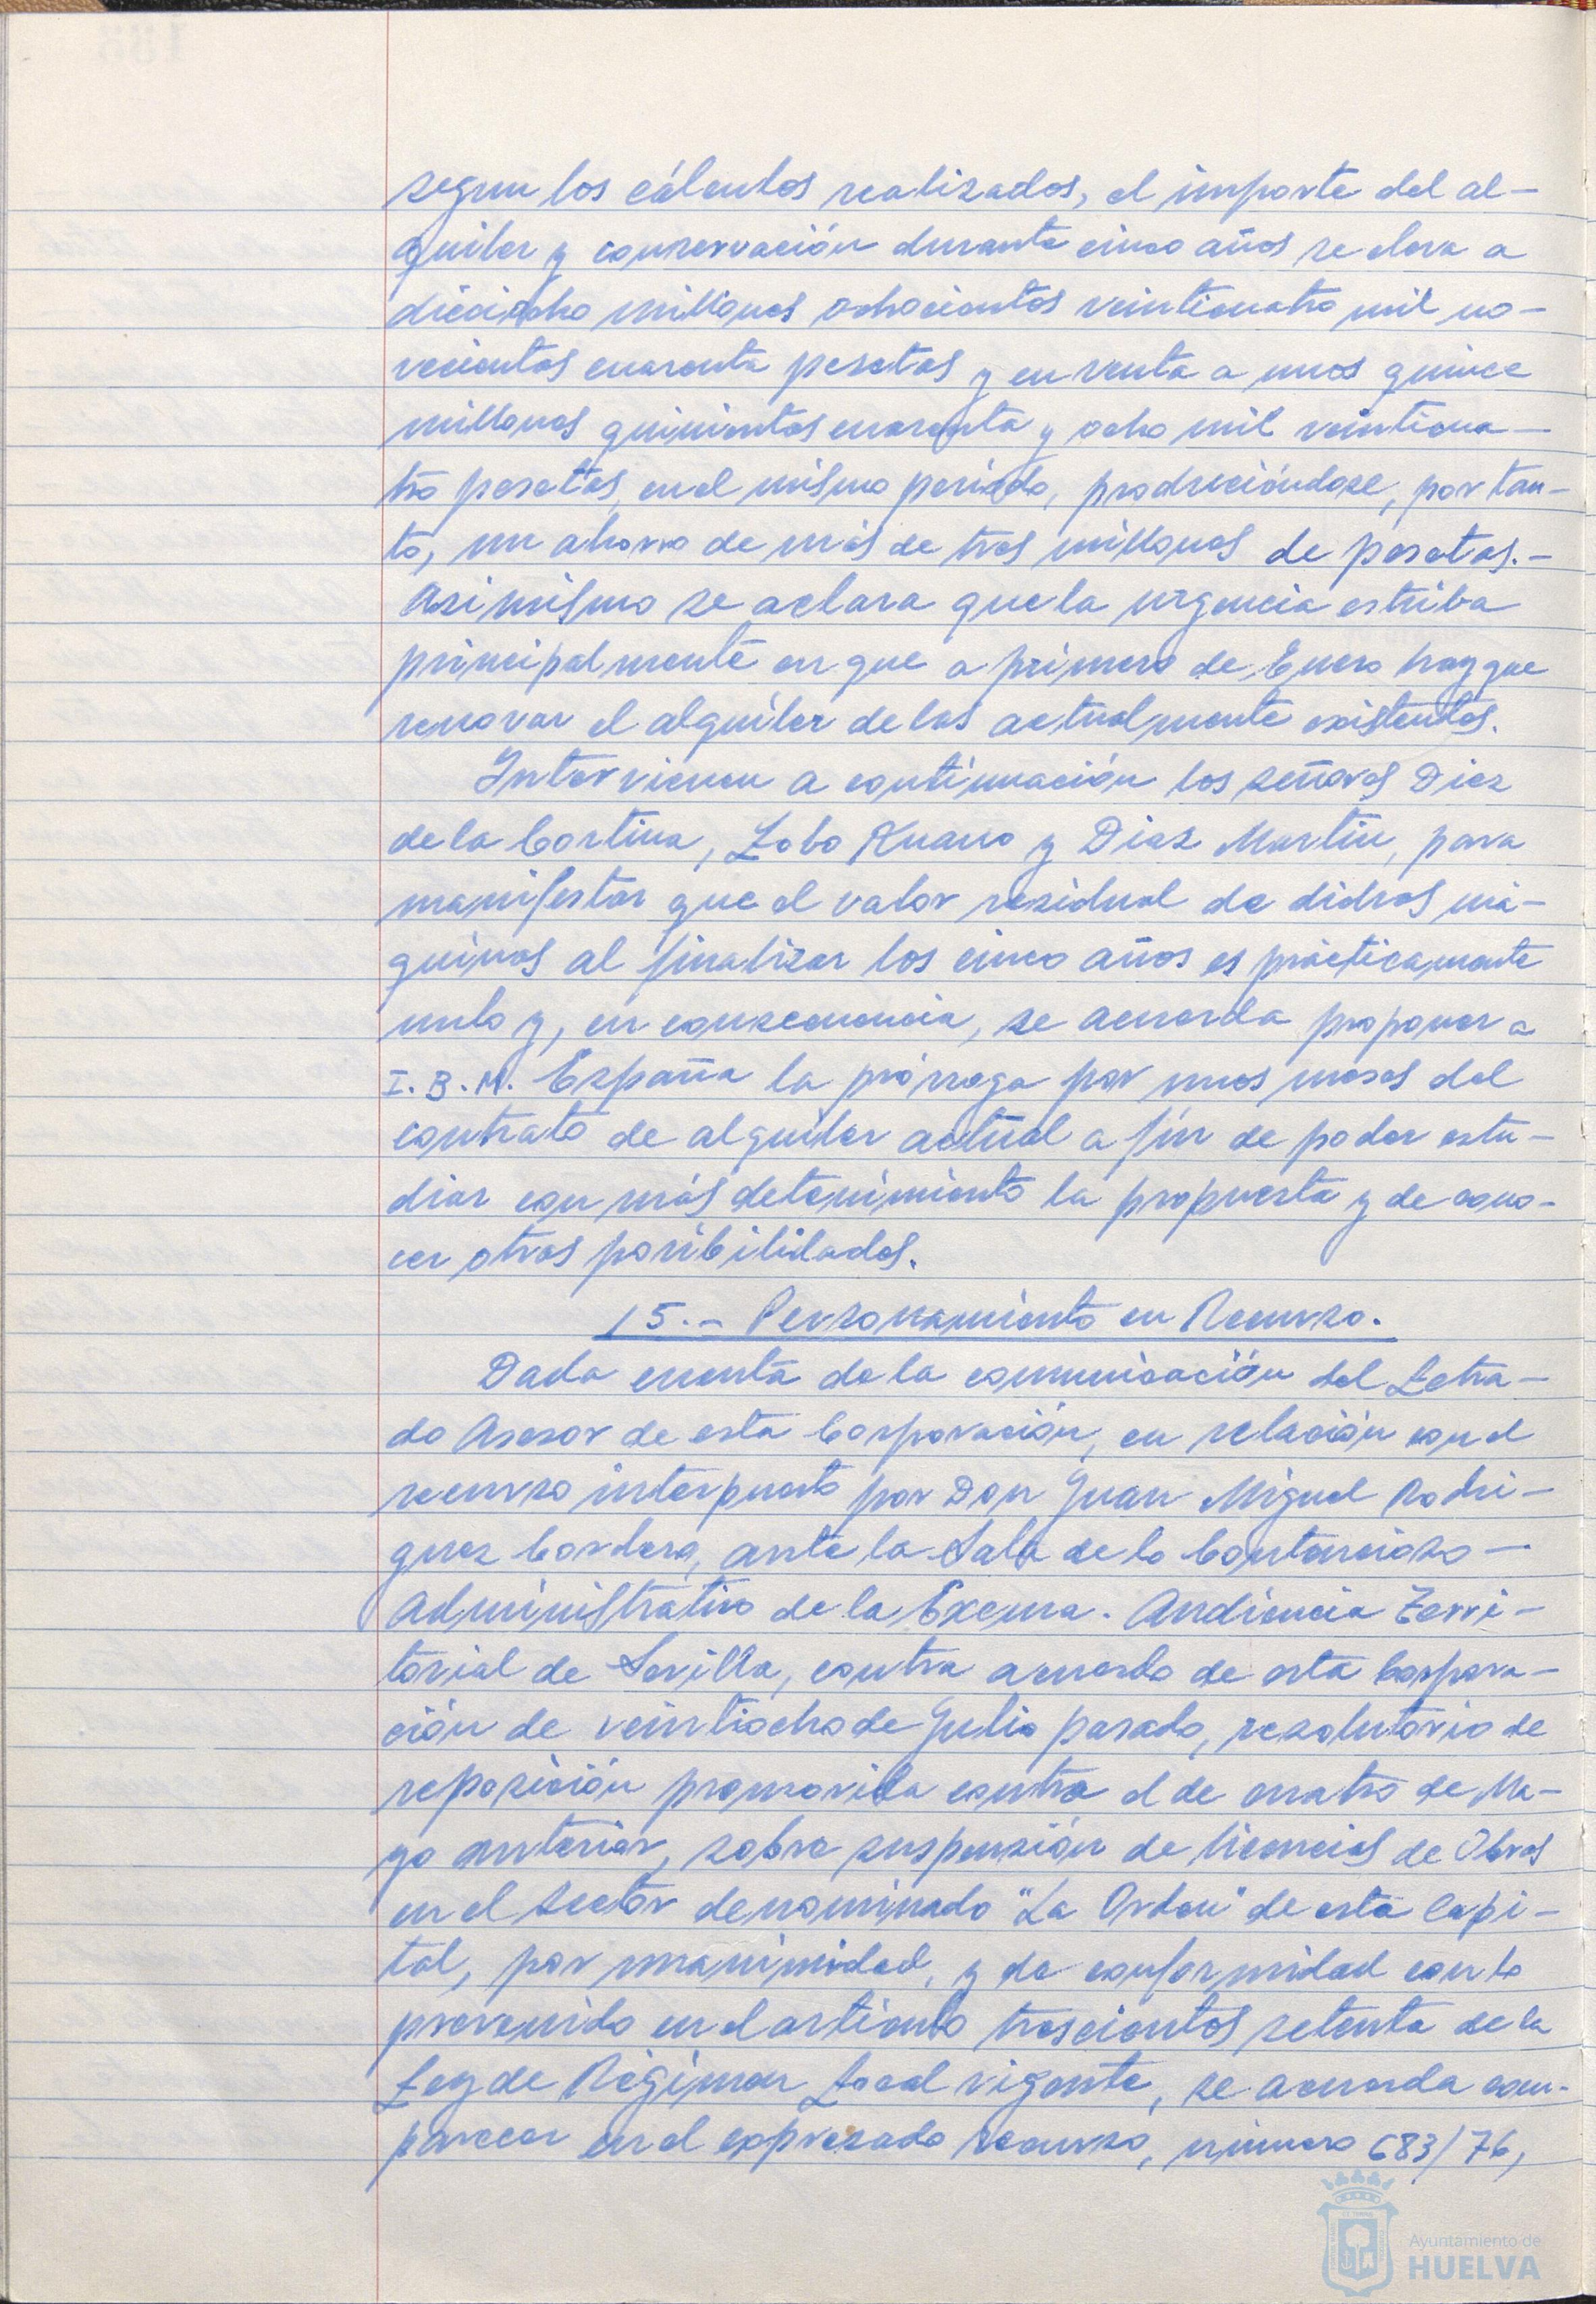 segun los cálculos realizados, el importe del al-
quiler y conservación durante cinco años se eleva a
dieciocho millones ochocientos veinticuatro mil no-
vecientas cuarenta pesetas y en venta a unos quince
millones quinientas cuarenta y ocho mil veinticua-
tro pesetas, en el mismo periodo, produciéndose, por tan-
to, un ahorro de más de tres millones de pesetas.-
Asimismo se aclara que la urgencia estriba
principalmente en que a primero de Enero hay que
renovar el alquiler de las actualmente existentes.
Intervienen a continuación los señores Diez
de la Cortina, Lobo Ruano y Diaz Martin, para
manifestar que el valor residual de dichas má-
quinas al finalizar los cinco años es prácticamente
nulo y, en consecuencia, se acuerda proponer a
I.B.M. España la prórroga por unos meses del
contrato de alquiler actual a fin de poder estu-
diar con más detenimiento la propuesta y de cono-
cer otras posibilidades.
15.- Personamiento en Recurso.
Dada cuenta de la comunicación del Letra-
do Asesor de esta Corporación, en relación con el
recurso interpuesto por Don Juan Miguel Rodri-
guez Cordero, ante la Sala de lo Contencioso-
Administrativo de la Excma. Audiencia Terri-
torial de Sevilla, contra acuerdo de esta Corpora-
ción de veintiocho de Julio pasado, resolutorio de
reposición promovida contra el de cuatro de Ma-
yo anterior, sobre suspensión de licencias de Obras
en el sector denominado "La Orden" de esta Capi-
tal, por unanimidad, y de conformidad con lo
prevenido en el artículo trescientos setenta de la
Ley de Régimen Local vigente, se acuerda com-
parecer en el expresado recurso, número 683/76,
Ayuntamiento de
HUELVA